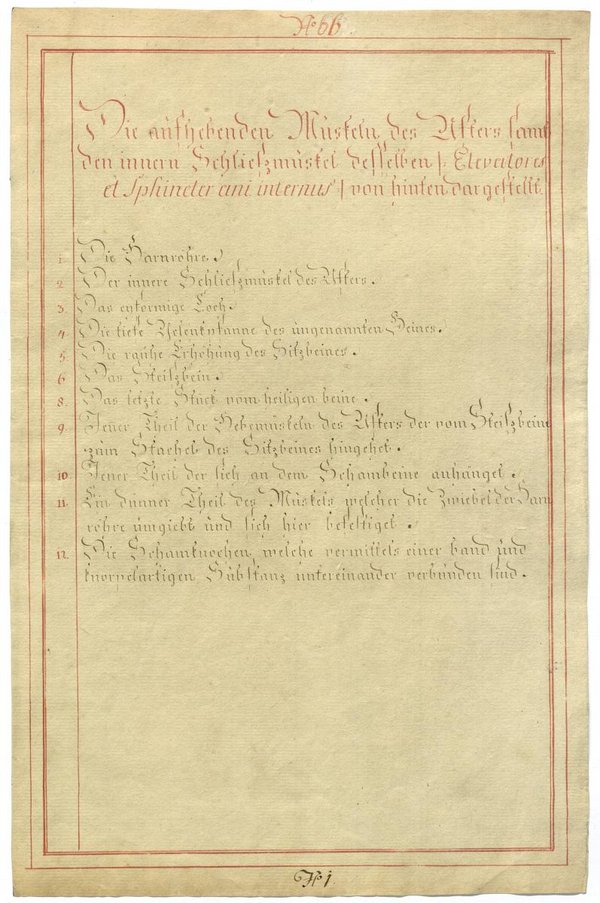 No 66
Die aufhebenden Muskeln des Afters samt
den innern Schlieszmuskel desselben /: Elevatores
et Sphincter ani internus :/ von hinten dargestellt.
1. Die Harnröhre.
2. Der innere Schlieszmuskel des Afters.
3. Das enförmige Loch.
4. Die tiefe Gelenkpfanne des ungenannten Beines.
5. Die rauhe Erhöhung des Sitzbeines.
6. Das Steiszbein.
8. Das letzte Stück vom heiligen beine.
9. Jener Theil der Hebermuskeln des Afters der vom Steiszbeine
zum Stachel des Sitzbeines hingehet.
10. Jener Theil der sich an dem Schambeine anhänget.
11. Ein dünner Theil des Muskels welcher die Zwiebel der Harn
röhre umgiebt und sich hier befestiget.
12. Die Schamknochen, welche vermittels einer band und
knorpelartigen Substanz untereinander verbunden sind.